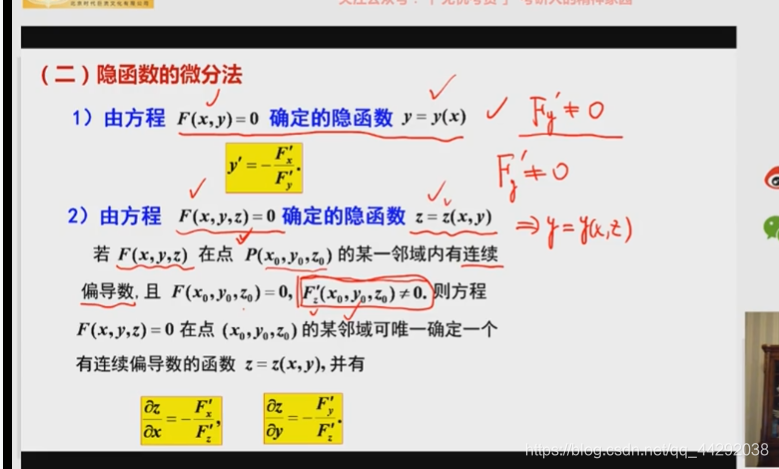 （二）隐函数的微分法
1）由方程 F(x,y)=0 确定的隐函数 y = y(x) F_y′≠0
y′ = −F′_x/F′_y.
F_y′≠0
2）由方程 F(x,y,z)=0 确定的隐函数 z = z(x,y) ⇒ y=y(x,z)
若 F(x,y,z) 在点 P(x₀,y₀,z₀) 的某一邻域内有连续
偏导数, 且 F(x₀,y₀,z₀)=0, F′_z(x₀,y₀,z₀)≠0. 则方程
F(x,y,z)=0 在点 (x₀,y₀,z₀) 的某邻域可唯一确定一个
有连续偏导数的函数 z = z(x,y), 并有
∂z/∂x = −F′_x/F′_z, ∂z/∂y = −F′_y/F′_z.
https://blog.csdn.net/qq_44292038